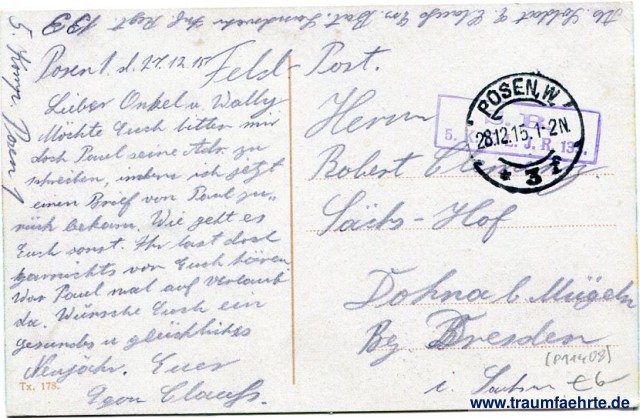 Abs. Soldat E. Clauß Ers. Bat. Landwehr Inf. Regt. 133
5. Komp. Posen 1
Posen 1. d. 27.12.15
Lieber Onkel u. Wally
Möchte Euch bitten mir
doch Paul seine Adr. zu
schreiben, indem ich jetzt
einen Brief von Paul zu-
rück bekam. Wie geht es
Euch sonst. Ihr last doch
garnichts von Euch hören.
War Paul mal auf Verlaub
da. Wünsche Euch ein
gesundes u glückliches
Neujahr. Euer
Egon Clauß
Tx. 178.
Feld-Post.
Herrn
Robert
Sächs-Hof
Dohna b Mügeln
Bz Dresden
i. Sachsen
POSEN, W.
28.12.15. 1-2N.
* 3 f
S. B.
5. K. J. R. 13
(P11408)
€6
www.traumfaehrte.de